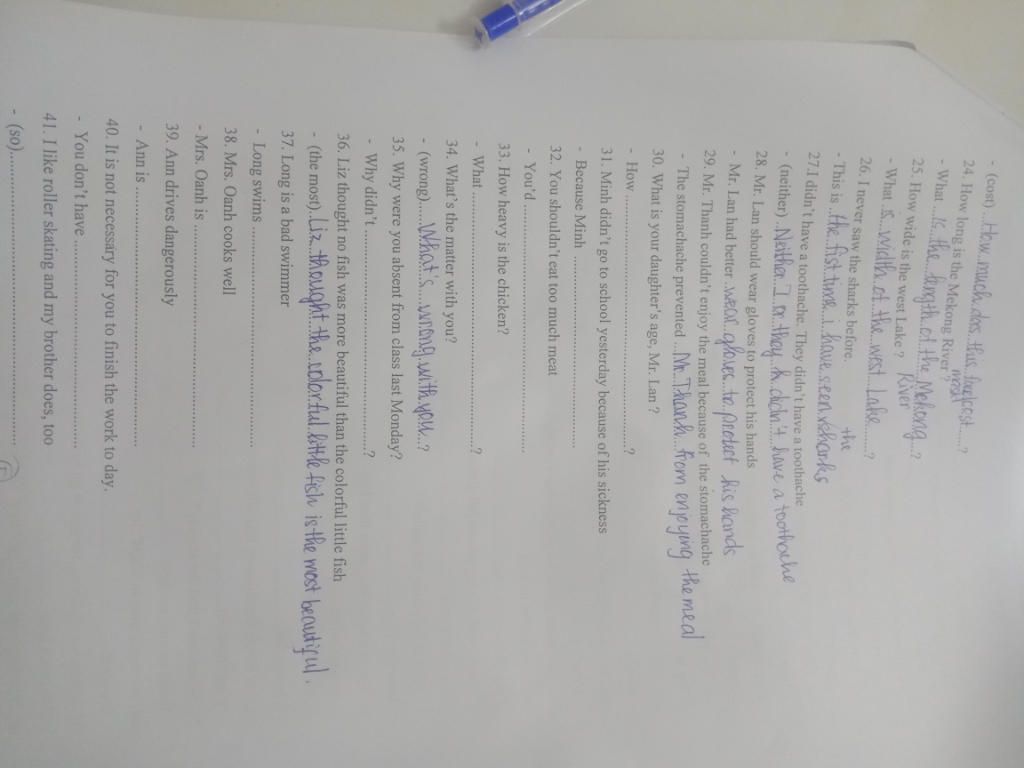 - (cost) ..How much does this ... cost.....?
most
24. How long is the Mekong River ?
- What ...is..the..length..of..the..Mekong....?
River
25. How wide is the west Lake ?
- What is...width..of..the..west..Lake.......?
26. I never saw the sharks before.
the
- This is ..the..fist..time..I..have..seen..sharks
27.I didn't have a toothache. They didn't have a toothache
- (neither) ..Neither I or they didn't have a toothache
28. Mr. Lan should wear gloves to protect his hands
- Mr. Lan had better ..wear..gloves..to protect his hands
29. Mr. Thanh couldn't enjoy the meal because of the stomachache
- The stomachache prevented ..Mr.Thanh..from enjoying the meal
30. What is your daughter's age, Mr. Lan ?
- How ..........................................................?
31. Minh didn't go to school yesterday because of his sickness
- Because Minh ..........................................
32. You shouldn't eat too much meat
- You'd ..........................................................
33. How heavy is the chicken?
- What ..........................................................?
34. What's the matter with you?
- (wrong).....What's....wrong..with you...?
35. Why were you absent from class last Monday?
- Why didn't ..................................................?
36. Liz thought no fish was more beautiful than the colorful little fish
- (the most)..Liz..thought..the..colorful..little fish is the most beautiful.
37. Long is a bad swimmer
- Long swims ..................................................
38. Mrs. Oanh cooks well
- Mrs. Oanh is ..................................................
39. Ann drives dangerously
- Ann is ..........................................................
40. It is not necessary for you to finish the work to day.
- You don't have ..................................................
41. I like roller skating and my brother does, too
- (so)..................................................................